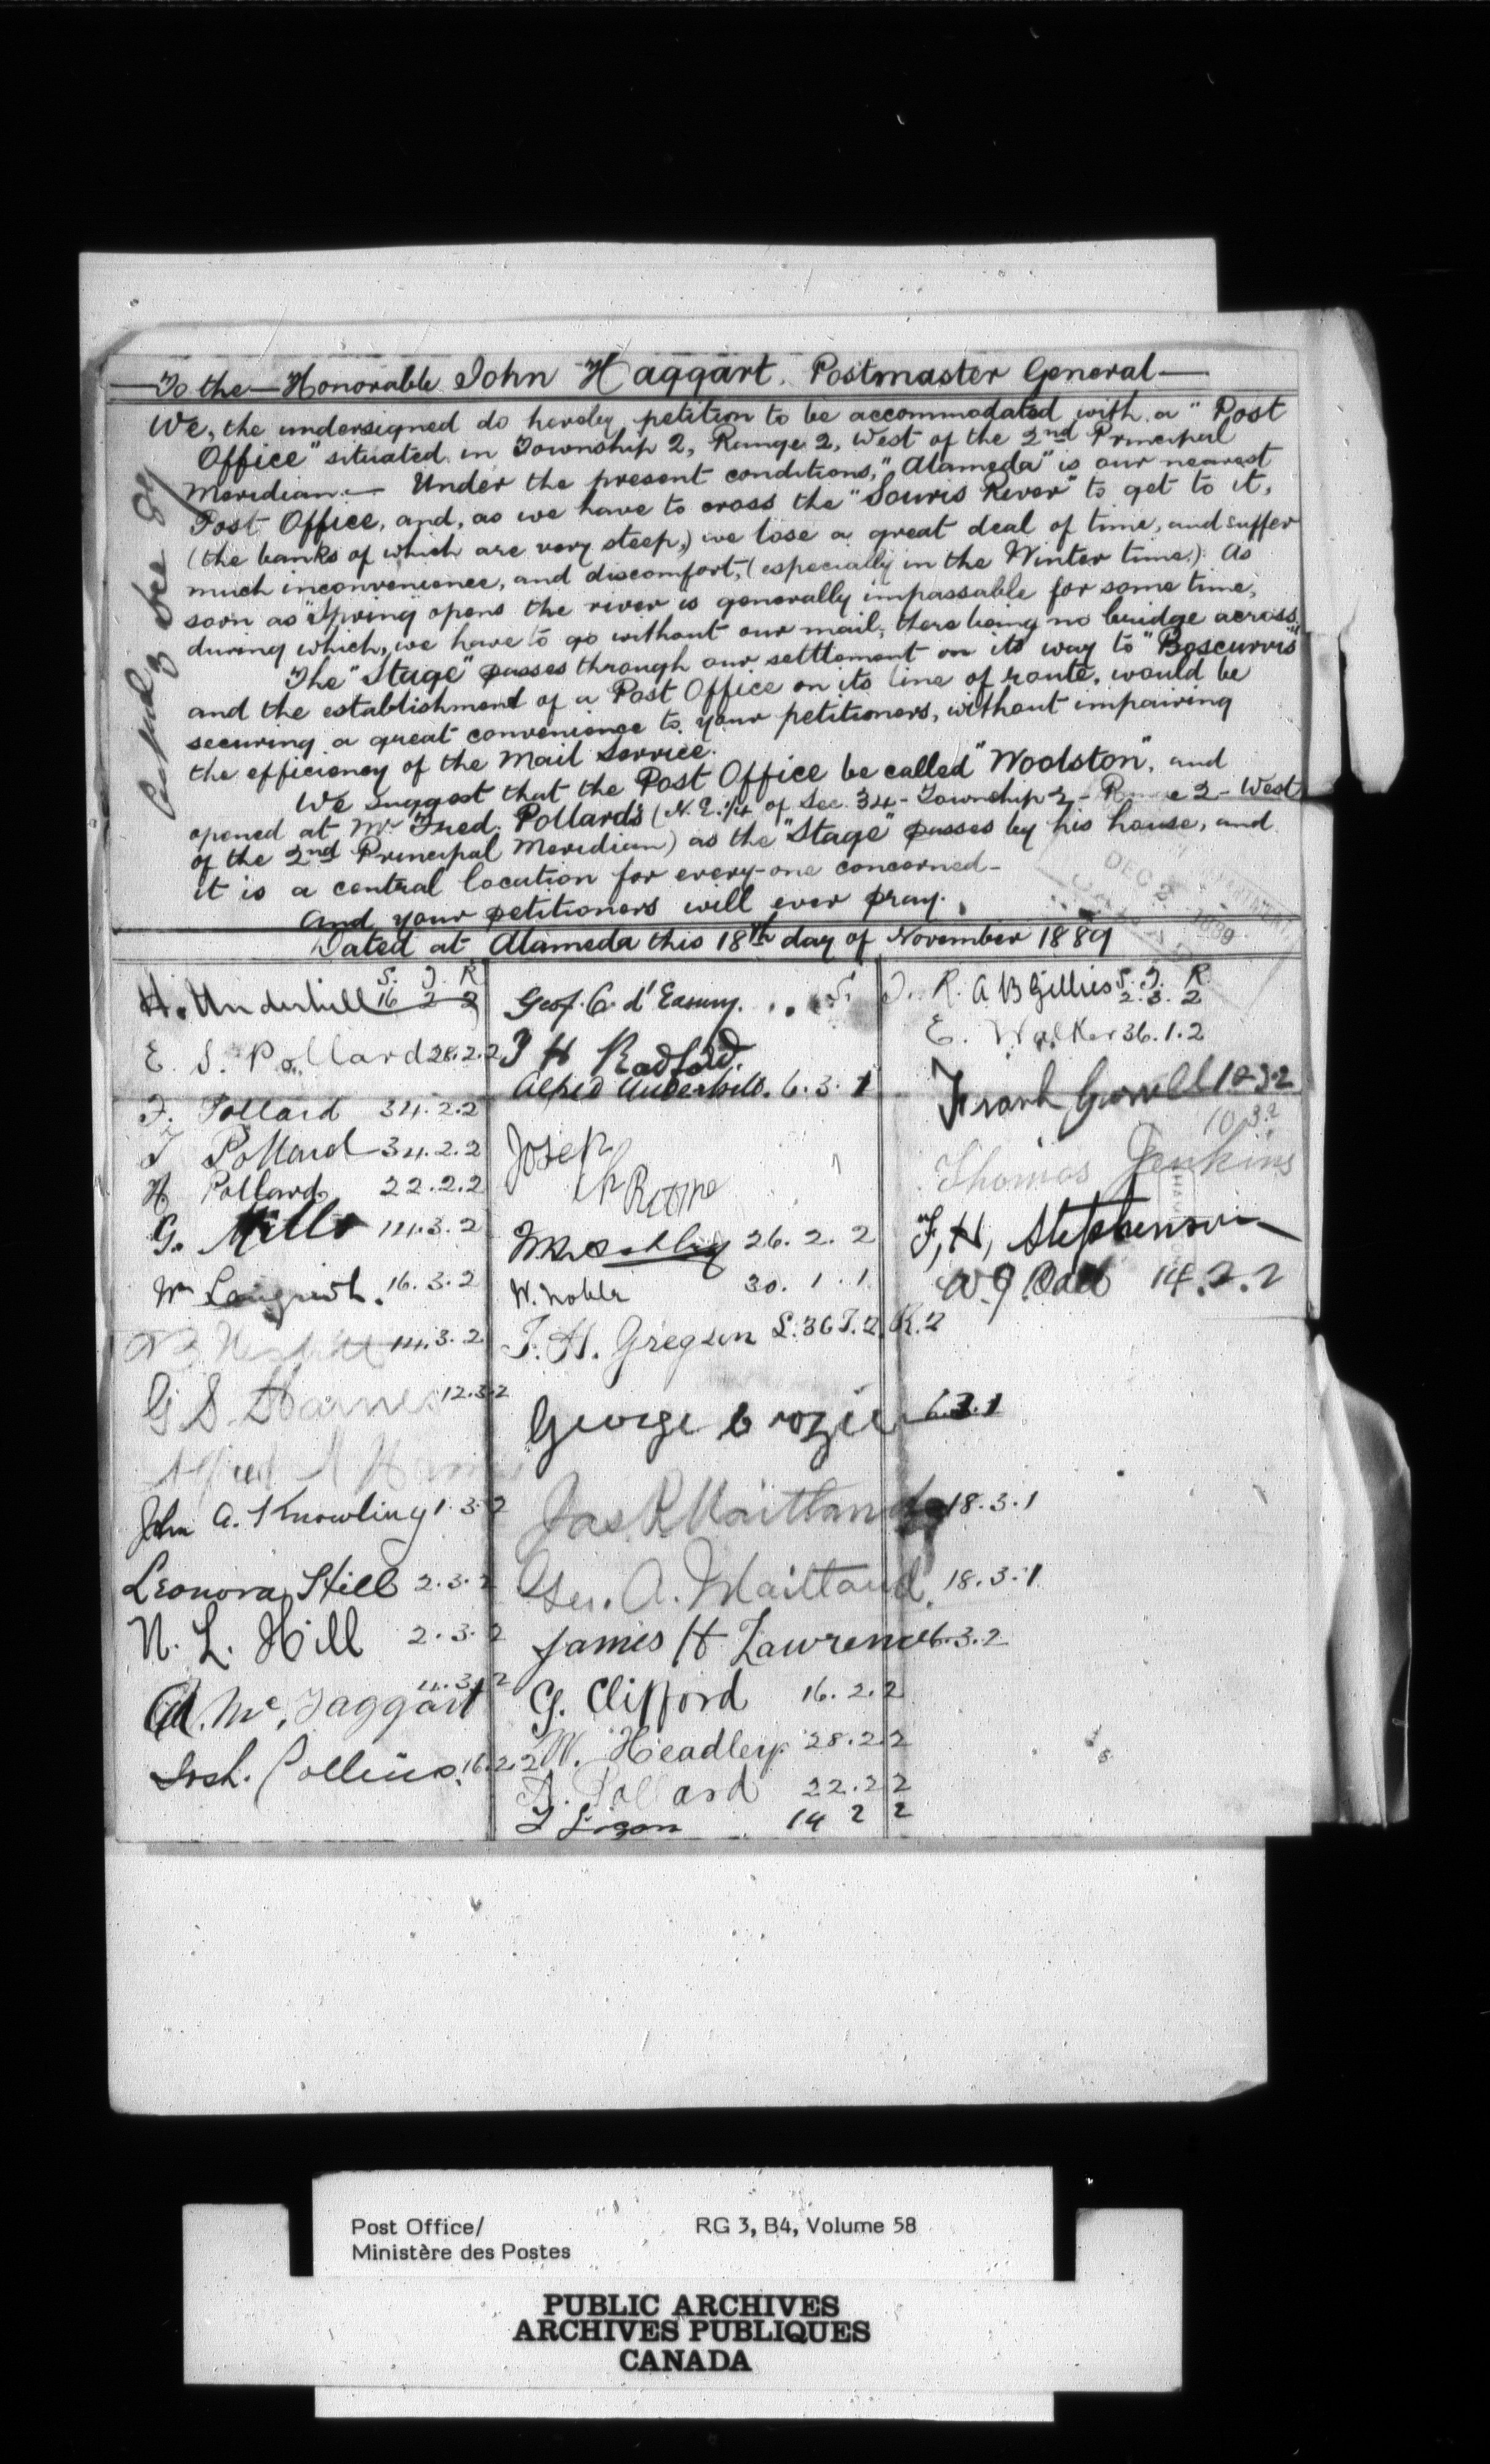 To the Honorable John Haggart. Postmaster General
We, the undersigned do hereby petition to be accommodated with a "Post
Office" situated in Township 2, Range 2, West of the 2nd Principal
Meridian.— Under the present conditions, "Alameda" is our nearest
Post Office, and, as we have to cross the "Souris River" to get to it,
(the banks of which are very steep,) we lose a great deal of time, and suffer
much inconvenience, and discomfort, (especially in the Winter time.) As
soon as "Spring opens the river is generally impassable for some time,
during which, we have to go without our mail, there being no bridge across.
The "Stage" passes through our settlement on its way to "Boscurvis"
and the establishment of a Post Office on its line of route, would be
securing a great convenience to your petitioners, without impairing
the efficiency of the Mail Service.
We suggest that the Post Office be called "Woolston", and
opened at Mr Fred. Pollard's (N.E. 1/4 of Sec. 34 - Township 2 - Range 2 - West
of the 2nd Principal Meridian) as the "Stage" passes by his house, and
it is a central location for every-one concerned—
And your petitioners will ever pray.
Dated at Alameda this 18th day of November 1889
DEC 1889
S. T. R.
H. Underhill 16 2 2
E. S. Pollard 28.2.2
F. Pollard 34.2.2
T Pollard 34.2.2
H Pollard 22.2.2
G. Mills 14.3.2
Wm 16.3.2
14.3.2
G S 12.3.2
Alfred
John A. Knowling 1.3.2
Leonora Hill 2.3.2
N. L. Hill 2.3.2
A. McTaggart 4.3.2
Josh. Collins. 16.2.2
Geof. C. d'
T H Radford.
Alfred Underhill. 6.3.1
Joseph
26.2.2
W. Noble 30.1.1
T. H. Gregson S.36 T.2 R.2
George Crozier 6.3.1
Jas R Maitland 18.3.1
Geo. A. Maitland. 18.3.1
James H Lawrence 6.3.2
G. Clifford 16.2.2
W. Headley 28.2.2
A. Pollard 22.2.2
T Ligon 14 2 2
S. T. R.
R. A B Gillies 2.3.2
E. Walker 36.1.2
Frank
10.3.2
Thomas Jenkins
F, H, Stephenson
W. J. 14.2.2
Post Office/
Ministère des Postes
RG 3, B4, Volume 58
PUBLIC ARCHIVES
ARCHIVES PUBLIQUES
CANADA